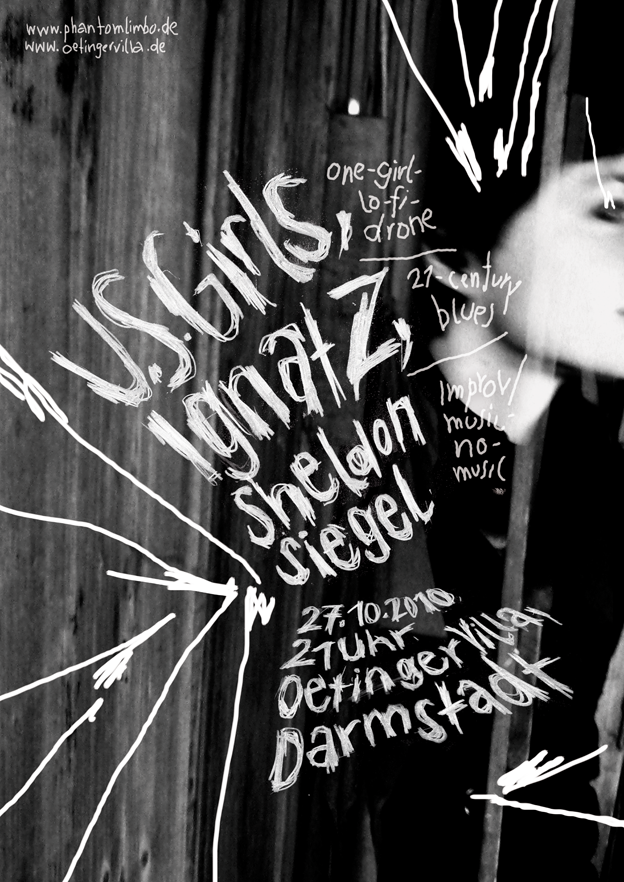 www.phantomlimbo.de
www.oetingervilla.de
U.S.Girls,
one-girl-
lo-fi-
drone
Ignatz,
21-century
blues
sheldon
siegel
improv/
music-
no-
music
27.10.2010
21 Uhr
Oetinger Villa,
Darmstadt